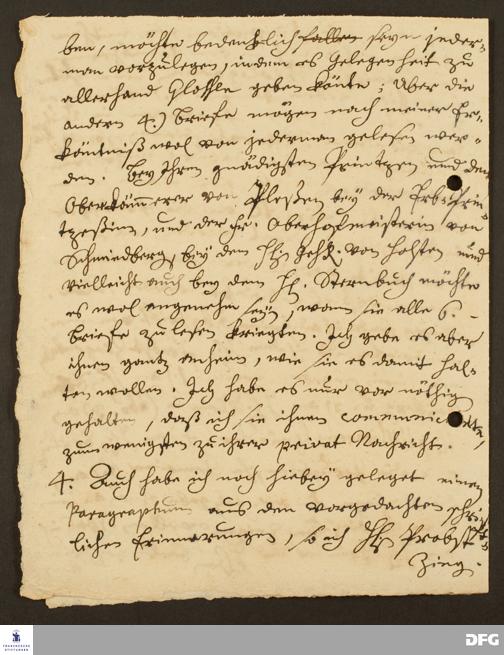 ben, möchte bedencklich fallen seyn jeder-
man vorzulegen, indem es Gelegenheit zu
allerhand Glossen geben könte; Aber die
andern 4.) Briefe mögen nach meiner Er-
käntniß wol von jederman gelesen wer-
den. Bey Ihrem gnädigsten Printzen und dem
Ober Cämmerer von Plessen bey der Erb-Prin-
tzeßin, und der Fr. Oberhofmeisterin von
Schmiedberg, bey dem Hn von Holsten und
vielleicht auch bey dem Hn. Sternbuch möchte
es wol angenehm seyn, wann sie alle 6.
Briefe zu lesen kriegten. Ich gebe es aber
ihnen gantz anheim, wie sie es damit hal-
ten wollen. Ich habe es nur vor nöthig
gehalten, daß ich sie ihnen communicirte,
zum wenigsten zu ihrer privat Nachricht.
4. Auch habe ich noch hiebey geleget einen
Paragraphum aus den vorgedachten schrifft-
lichen Erinnerungen, so ich Hn Probst
Zieg.
FRANCKESCHE
STIFTUNGEN
DFG